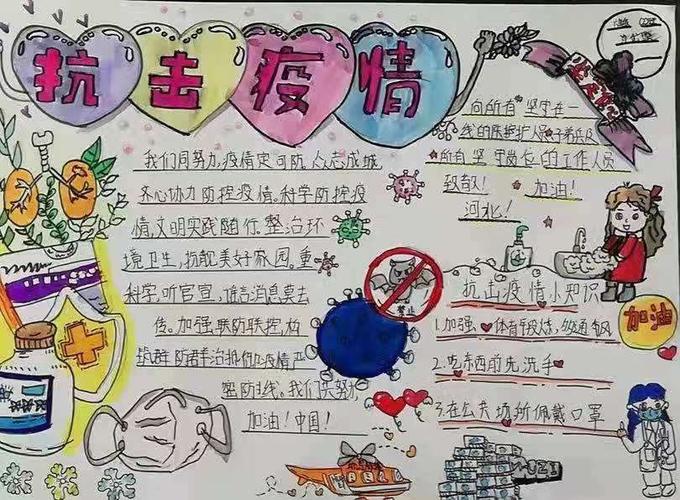 抗击疫情
我们同努力,疫情定可防,众志成城
齐心协力防控疫情。科学防控疫
情,文明实践随行。整治环
境卫生,扮靓美好家园。重
科学,听官宣,谣言消息莫去
传。加强联防联控,构
筑群防群治抵御疫情严
密防线。我们共努力
加油!中国!
向所有坚守在一
线的医护人员
所有坚守岗位的工作人员
致敬! 加油!
河北!
禁止
抗击疫情小知识
1.加强体育锻炼,多通风
2.吃东西前先洗手
3.在公共场所佩戴口罩
加油